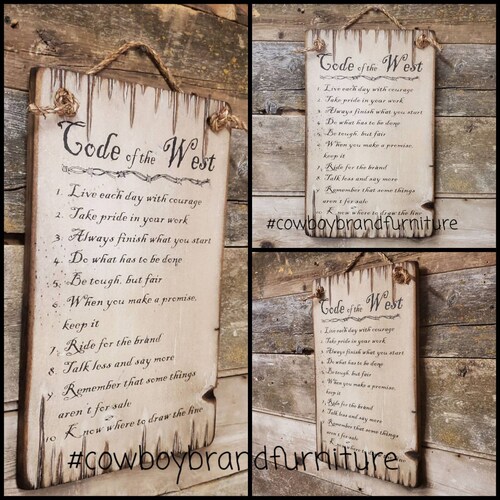 Code of the West
1. Live each day with courage
2. Take pride in your work
3. Always finish what you start
4. Do what has to be done
5. Be tough, but fair
6. When you make a promise,
keep it
7. Ride for the brand
8. Talk less and say more
9. Remember that some things
aren't for sale
10. Know where to draw the line
#cowboybrandfurniture
Code of the West
1. Live each day with courage
2. Take pride in your work
3. Always finish what you start
4. Do what has to be done
5. Be tough, but fair
6. When you make a promise,
keep it
7. Ride for the brand
8. Talk less and say more
9. Remember that some things
aren't for sale
10. Know where to draw the line
#cowboybrandfurniture
Code of the West
1. Live each day with courage
2. Take pride in your work
3. Always finish what you start
4. Do what has to be done
5. Be tough, but fair
6. When you make a promise,
keep it
7. Ride for the brand
8. Talk less and say more
9. Remember that some things
aren't for sale